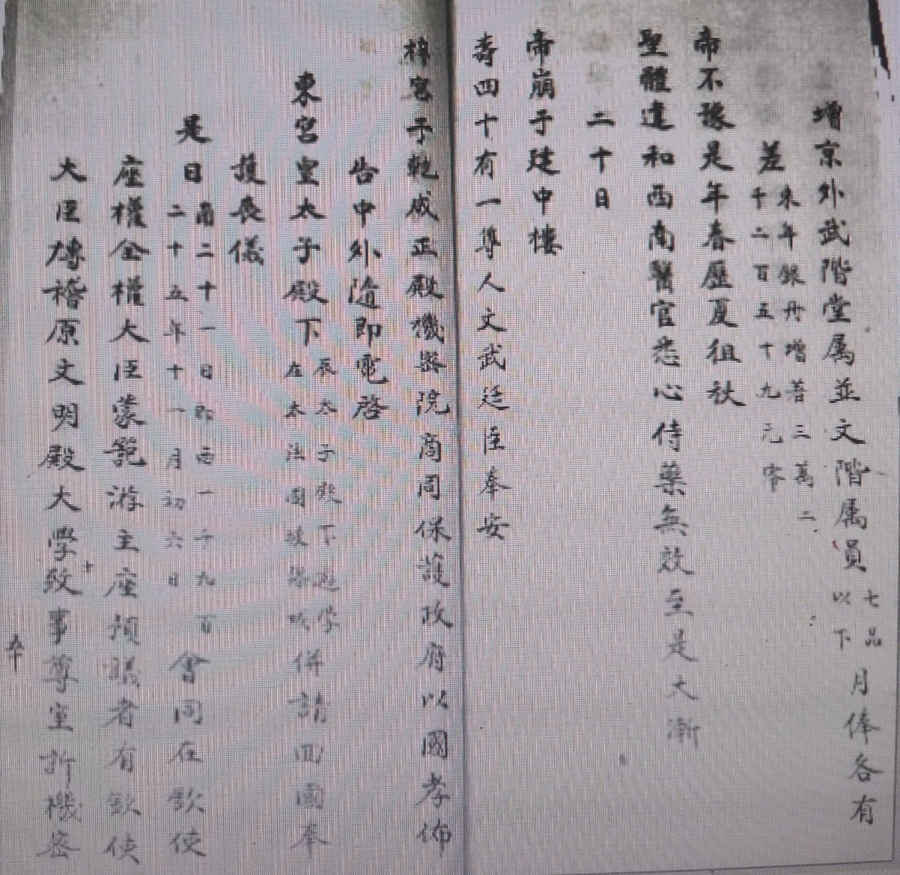 增京外武階堂属並文階属員七品以下月俸各有
差來年銀冊增著三萬二千二百五十九元零
帝不豫是年春歷夏徂秋
聖體違和西南醫官悉心侍藥無效至是大漸
二十日
帝崩于建中樓
壽四十有一尊人文武廷臣奉安
梓宮于乾成正殿機密院商同保護政府以國孝佈
告中外隨即電啓
東宮皇太子殿下辰太子殿下遊學在大法國故併請回國奉
護喪儀
是日二十一日即西一千九百二十五年十一月初六日會同在欽使
座權全權大臣蒙 游主座預議者有欽使
大臣 稽原文明殿大學致事尊室訢機密